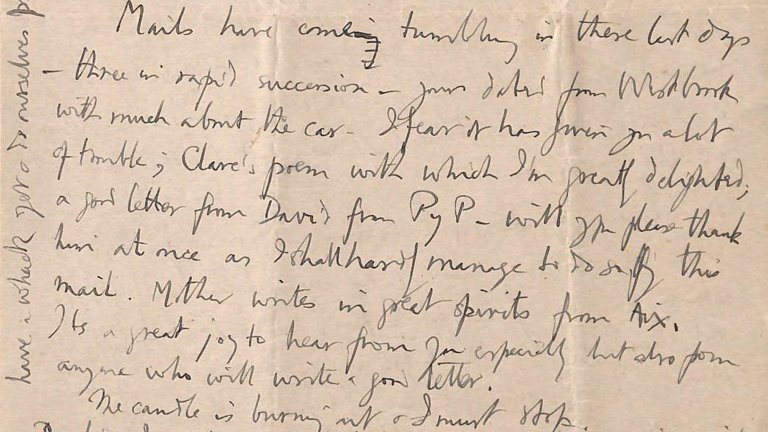 Mails have come tumbling in these last days
– three in rapid succession – yours dated from Westbrook
with much about the car – I fear it has given you a lot
of trouble; Clare's poem with which I'm greatly delighted;
a good letter from David from Py P – will you please thank
him at once as I shall hardly manage to do so by this
mail. Mother writes in great spirits from Aix.
Its a great joy to hear from you especially but also from
anyone who will write a good letter.
The candle is burning out & I must stop.
have a whack got & do ourselves